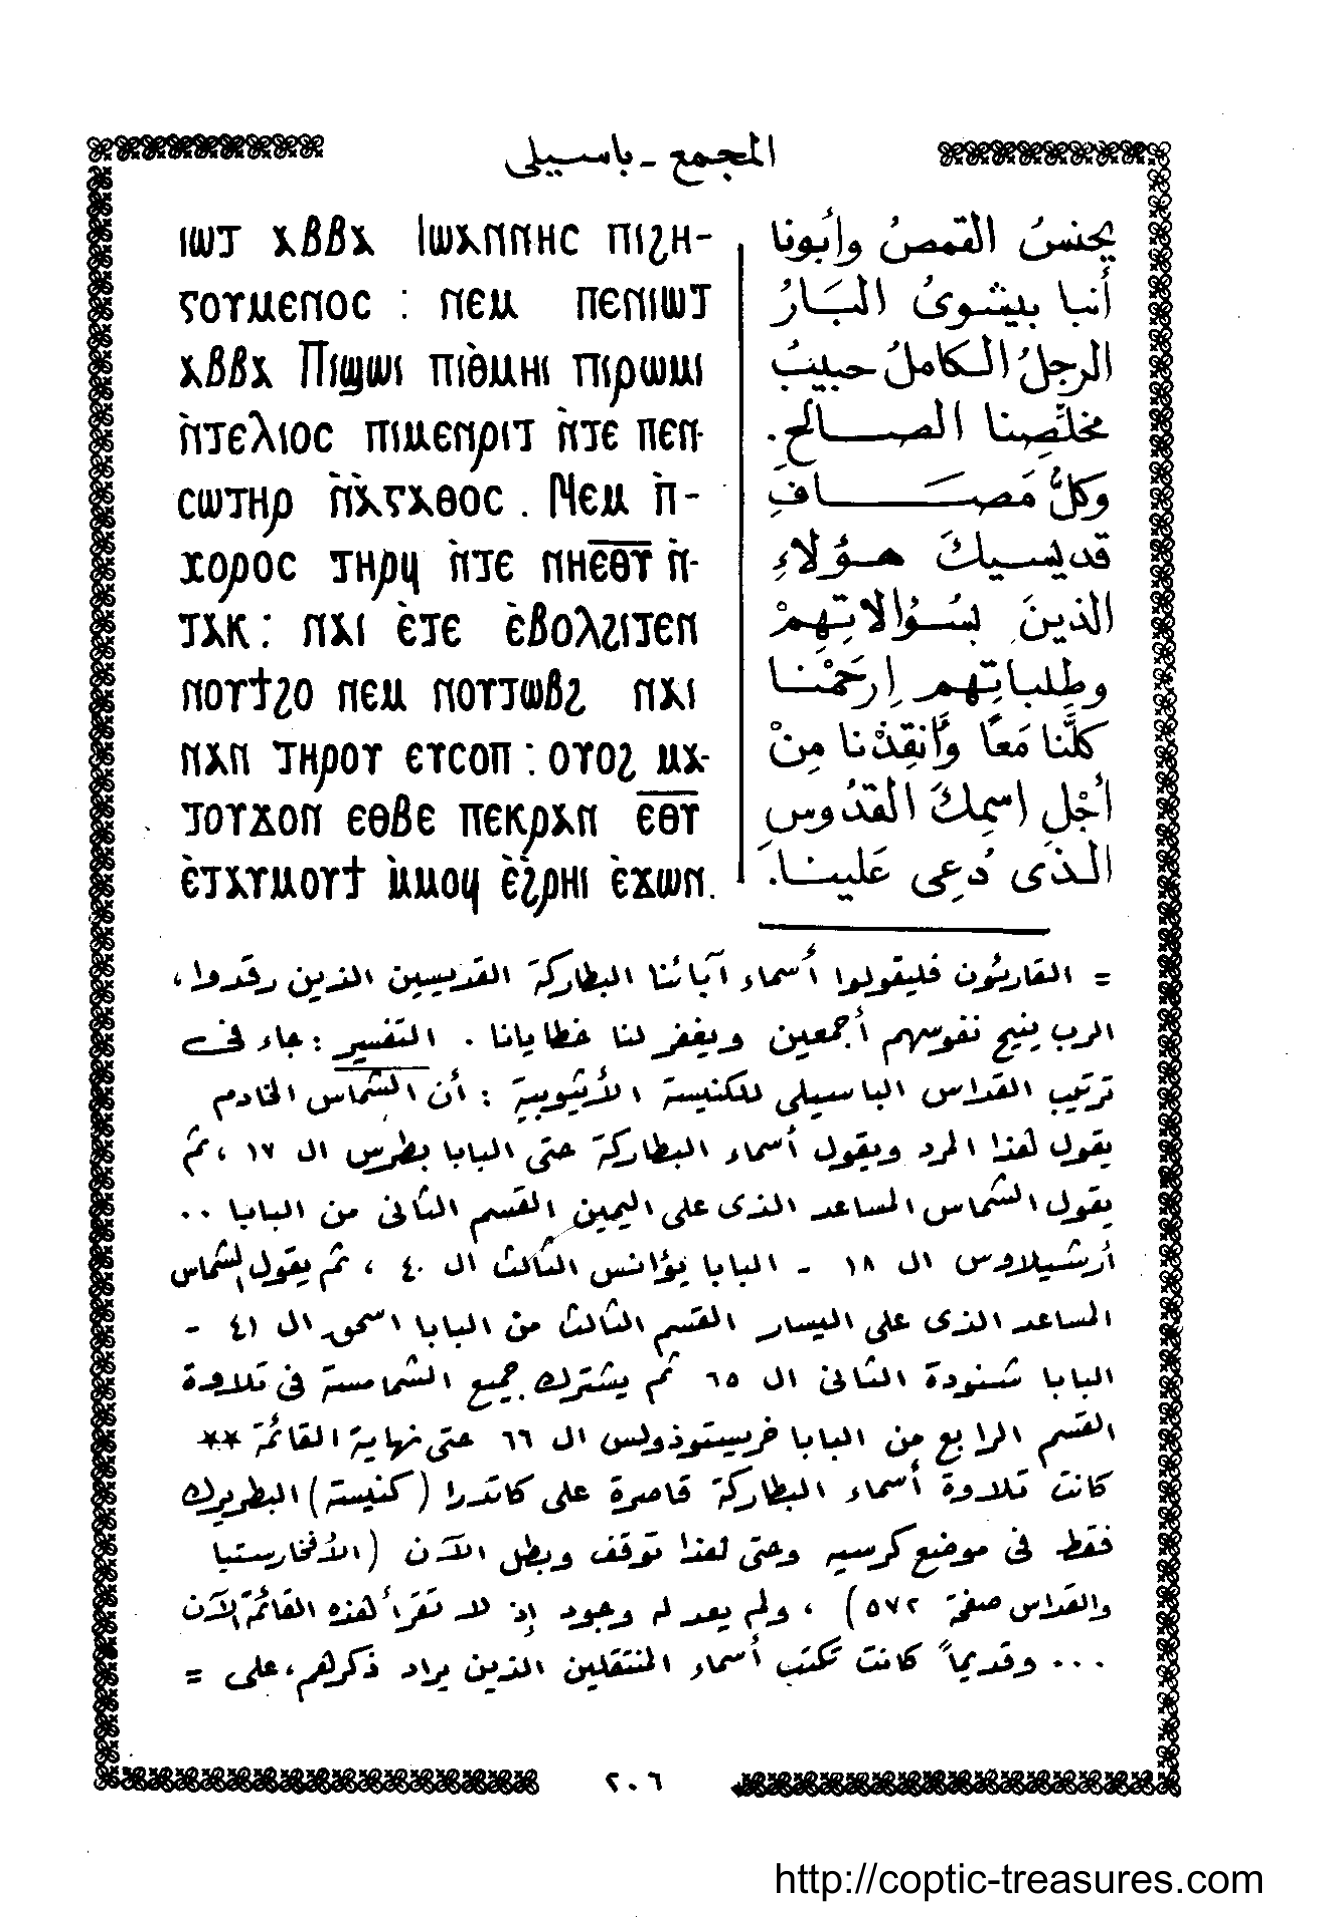 المجمع - باسيلى
ⲓⲱⲧ ⲁⲃⲃⲁ Ⲓⲱⲁⲛⲛⲏⲥ ⲡⲓϩⲏ-
ⲅⲟⲩⲙⲉⲛⲟⲥ : ⲛⲉⲙ ⲡⲉⲛⲓⲱⲧ
ⲁⲃⲃⲁ Ⲡⲓϣⲱⲓ ⲡⲓⲑ̀ⲙⲏⲓ ⲡⲓⲣⲱⲙⲓ
ⲛ̀ⲧⲉⲗⲓⲟⲥ ⲡⲓⲙⲉⲛⲣⲓⲧ ⲛ̀ⲧⲉ ⲡⲉⲛ-
ⲥⲱⲧⲏⲣ ⲛ̀ⲁ̀ⲅⲁⲑⲟⲥ . Ⲛⲉⲙ ⲡ̀-
ⲭⲟⲣⲟⲥ ⲧⲏⲣϥ ⲛ̀ⲧⲉ ⲛⲏⲉ̅ⲑ̅ⲩ̅ ⲛ̀-
ⲧⲁⲕ : ⲛⲁⲓ ⲉ̀ⲧⲉ ⲉ̀ⲃⲟⲗϩⲓⲧⲉⲛ
ⲛⲟⲩϯϩⲟ ⲛⲉⲙ ⲛⲟⲩⲧⲱⲃϩ ⲛⲁⲓ
ⲛⲁⲛ ⲧⲏⲣⲟⲩ ⲉⲩⲥⲟⲡ : ⲟⲩⲟϩ ⲙⲁ-
ⲧⲟⲩϫⲟⲛ ⲉⲑⲃⲉ ⲡⲉⲕⲣⲁⲛ ⲉ̅ⲑ̅ⲩ̅
ⲉ̀ⲧⲁⲩⲙⲟⲩϯ ⲙ̀ⲙⲟϥ ⲉ̀ϩ̀ⲣⲏⲓ ⲉ̀ϫⲱⲛ.
يحنسُ القمصُ وأبونا
أنبا بيشوىُ البَارُ
الرجلُ الكاملُ حبيبُ
مخلِّصِنا الصالحِ.
وكلُّ مَصَافِ
قديسيكَ هؤلاءِ
الذينَ بسُؤالاتِهِمْ
وطِلباتِهم اِرحَمْنا
كلَّنا مَعًا وأَنقِذْنا مِنْ
أجْلِ اسمِكَ القدُوسِ
الذى دُعِى عَلينا.
= القاريئون فليقولوا أسماء آبائنا البطاركة القديسين الذين رقدوا،
الرب ينيح نفوسهم أجمعين ويغفر لنا خطايانا . التفسير : جاء فى
ترتيب القداس الباسيلى للكنيسة الأثيوبية : أن الشماس الخادم
يقول هذا المرد ويقول أسماء البطاركة حتى البابا بطرس ال ١٧ ، ثم
يقول الشماس المساعد الذى على اليمين القسم الثانى من البابا ٠٠
أرشيلاوس ال ١٨ - البابا يؤانس الثالث ال ٤٠ ، ثم يقول الشماس
المساعد الذى على اليسار القسم الثالث من البابا اسحق ال ٤١ -
البابا شنودة الثانى ال ٦٥ ثم يشترك جميع الشمامسة فى تلاوة
القسم الرابع من البابا خريستوذولس ال ٦٦ حتى نهاية القائمة **
كانت تلاوة أسماء البطاركة قاصرة على كاتدرا (كنيسة) البطريرك
فقط فى موضع كرسيه وحتى هذا توقف وبطل الآن (الأفخارستيا
والقداس صفحة ٥٧٢) ، ولم يعد له وجود إذ لا تقرأ هذه القائمة الآن
... وقديماً كانت تكتب أسماء المنتقلين الذين يراد ذكرهم، على =
٢٠٦
http://coptic-treasures.com